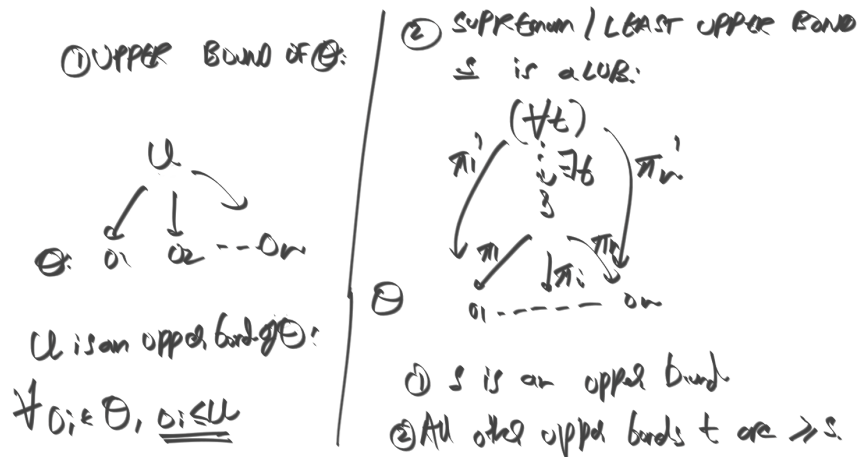 ① UPPER BOUND OF Θ:
U
Θ: O1 O2 --- On
U is an upper bound of Θ:
∀ Oi ∈ Θ, Oi ≤ U
② SUPREMUM / LEAST UPPER BOUND
s is a LUB:
(∀t)
π1' ∃t πn'
s
π1 πi πn
Θ O1 ------- On
① s is an upper bound
② All other upper bonds t are ≥ s.